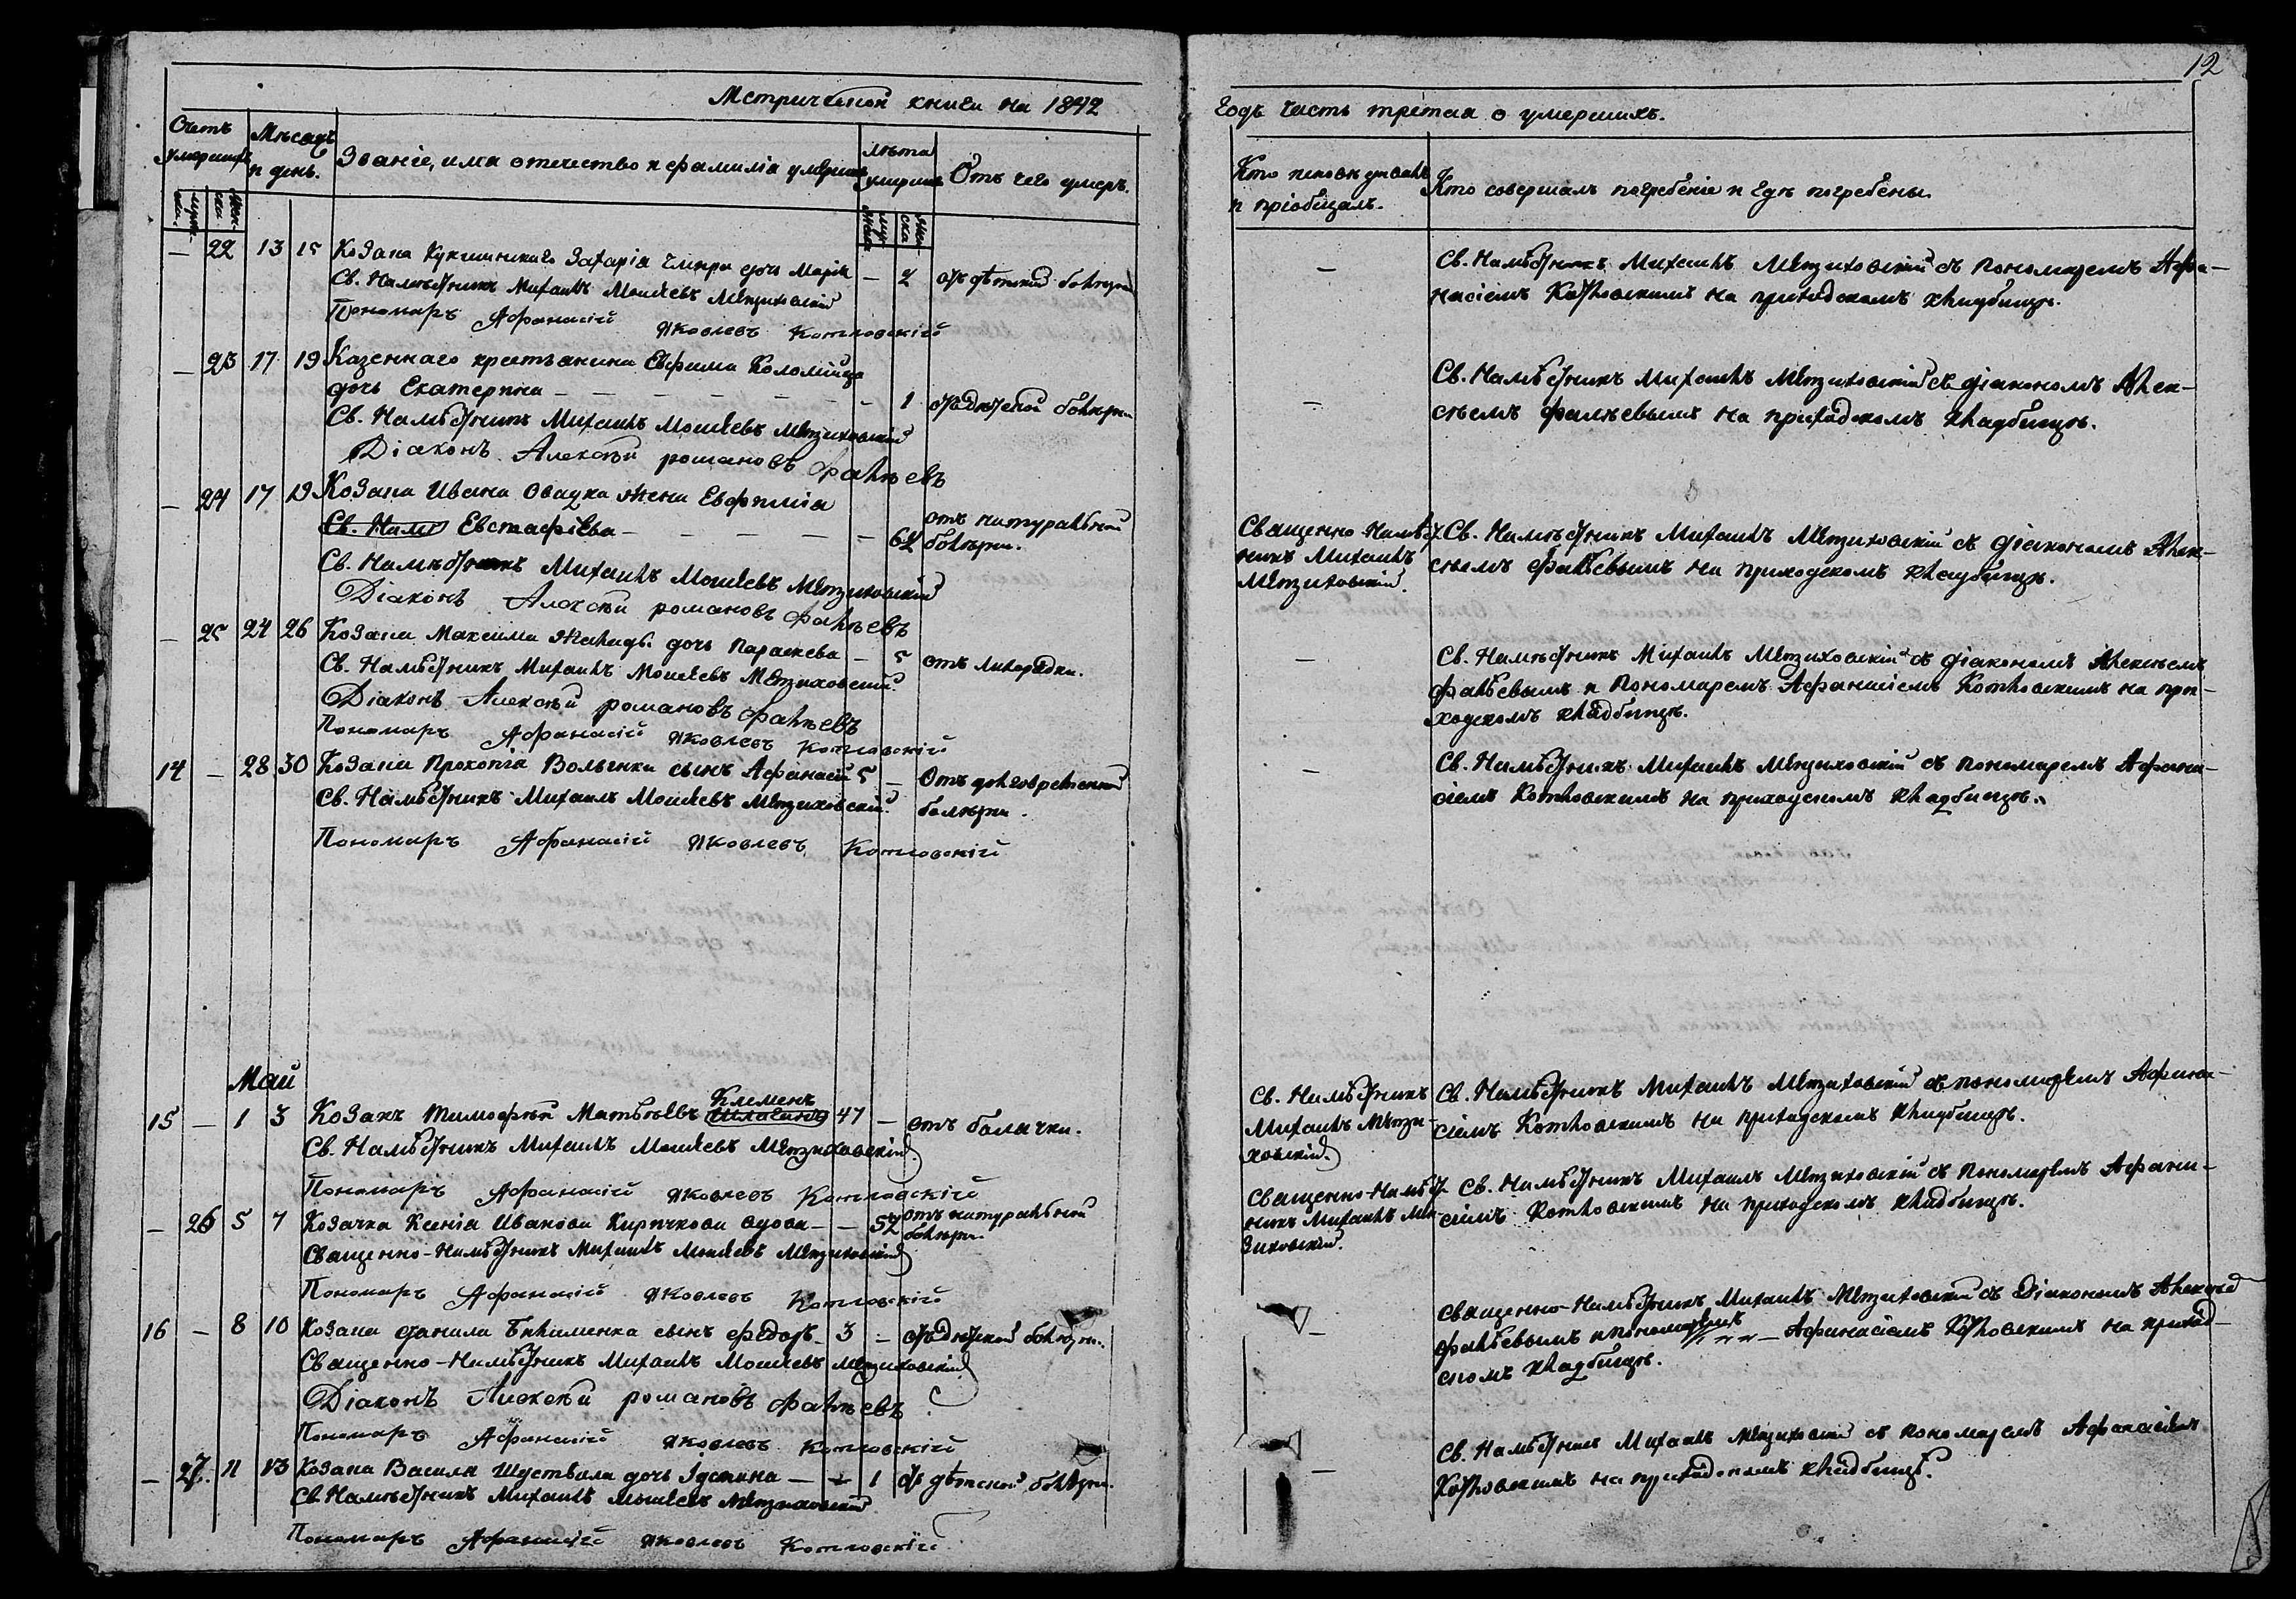 Метрической книги на 1842
Счетъ умершихъ
Мѣсацъ и день.
Званіе, имя отечество и фамилія умершихъ
Лѣта умершихъ
Отъ чего умеръ.
— 22 13 15 Козака Захарія дочь Марія — 2 отъ дѣтской болѣзни
Св. Намѣстникъ Михаилъ Моисеевъ
Пономарь Афанасій Яковлевъ Котловскій
— 23 17 19 Казеннаго крестьянина Евфима Коломійца
дочь Екатерина — — — — — — 1 отъ дѣтской болѣзни
Св. Намѣстникъ Михаилъ Моисеевъ
Діаконъ Алексѣй романовъ Фалѣевъ
— 24 17 19 Козака Ивана жена Евфимія
Св. Нам Евстафіева — — — — — — 62 отъ натуральной болѣзни.
Св. Намѣстникъ Михаилъ Моисеевъ
Діаконъ Алексѣй романовъ Фалѣевъ
— 25 24 26 Козака Максима дочь Параскева — 5 отъ лихорадки.
Св. Намѣстникъ Михаилъ Моисеевъ
Діаконъ Алексѣй романовъ Фалѣевъ
Пономарь Афанасій Яковлевъ Котловскій
14 — 28 30 Козака Прокопія Волынки сынъ Афанасій 5 — Отъ долговременной
Св. Намѣстникъ Михаилъ Моисеевъ болѣзни.
Пономарь Афанасій Яковлевъ Котловскій
Май
Клемень
15 — 1 3 Козакъ Тимофѣй Матвѣевъ 47 — отъ болячки.
Св. Намѣстникъ Михаилъ Моисеевъ
Пономарь Афанасій Яковлевъ Котловскій
— 26 5 7 Козачка Ксенія Иванова Киричкова вдова — — 52 отъ натуральной болѣзни.
Священно-Намѣстникъ Михаилъ Моисеевъ
Пономарь Афанасій Яковлевъ Котловскій
16 — 8 10 Козака Данила сынъ Федоръ — 3 — отъ дѣтской болѣзни.
Священно-Намѣстникъ Михаилъ Моисеевъ
Діаконъ Алексѣй романовъ Фалѣевъ
Пономарь Афанасій Яковлевъ Котловскій
— 27. 11 13 Козака Василя дочь Іустина — — 1 отъ дѣтской болѣзни.
Св. Намѣстникъ Михаилъ Моисеевъ
Пономарь Афанасій Яковлевъ Котловскій
12
годъ часть третая о умершихъ.
Кто исповѣдывалъ и пріобщалъ.
Кто совершалъ погребеніе и гдѣ погребены.
— Св. Намѣстникъ Михаилъ съ пономаремъ Афа-
насіемъ Котловскимъ на приходскомъ кладбищѣ.
— Св. Намѣстникъ Михаилъ съ діакономъ Алек-
сѣемъ Фалѣевымъ на приходскомъ кладбищѣ.
Священно-Намѣст- Св. Намѣстникъ Михаилъ съ діакономъ Алек-
никъ Михаилъ сѣемъ Фалѣевымъ на приходскомъ кладбищѣ.
— Св. Намѣстникъ Михаилъ съ діакономъ Алексѣемъ
Фалѣевымъ и Пономаремъ Афанасіемъ Котловскимъ на при-
ходскомъ кладбищѣ.
— Св. Намѣстникъ Михаилъ съ пономаремъ Афана-
сіемъ Котловскимъ на приходскомъ кладбищѣ.
Св. Намѣстникъ Св. Намѣстникъ Михаилъ съ пономаремъ Афана-
Михаилъ сіемъ Котловскимъ на приходскомъ кладбищѣ.
Священно-Намѣст- Св. Намѣстникъ Михаилъ съ Пономаремъ Афана-
никъ Михаилъ сіемъ Котловскимъ на приходскомъ кладбищѣ.
— Священно-Намѣстникъ Михаилъ съ Діакономъ
Фалѣевымъ и пономаремъ — Афанасіемъ Котловскимъ на приход-
скомъ кладбищѣ.
— Св. Намѣстникъ Михаилъ съ пономаремъ Афанасіемъ
Котловскимъ на приходскомъ кладбищѣ.